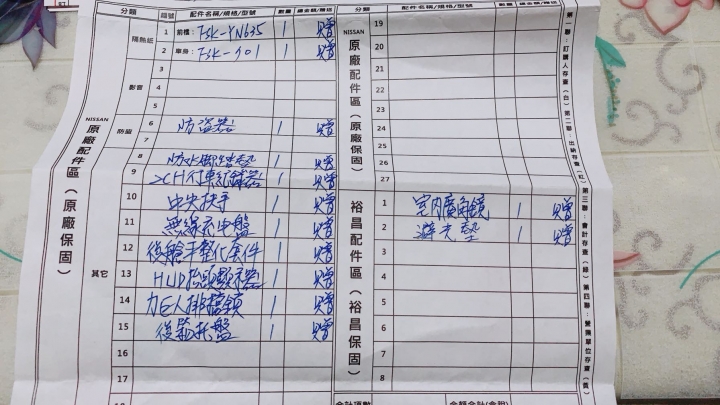 分類 編號 配件名稱/規格/型號 數量 總金額/贈送
NISSAN 原廠配件區（原廠保固）
隔熱紙
1 前檔：FSK-YN635 1 贈
2 車身：FSK-901 1 贈
影音
3
4
5
防盜
6 防盜器 1 贈
7
其它
8 防水腳踏墊 1 贈
9 2CH行車紀錄器 1 贈
10 中央扶手 1 贈
11 無線充電盤 1 贈
12 後艙平整化套件 1 贈
13 HUD抬頭顯示器 1 贈
14 力巨人排檔鎖 1 贈
15 後箱托盤 1 贈
16
17
18
分類 配件名稱/規格/型號 數量 總金額/贈送
NISSAN 原廠配件區（原廠保固）
19
20
21
22
23
24
25
26
27
裕昌配件區（裕昌保固）
1 室內廣角鏡 1 贈
2 避光墊 1 贈
3
4
5
6
7
8
合計項數 金額合計(含稅)
第一聯：訂購人存查（白）第二聯：出納存查（紅）第三聯：會計存查（綠）第四聯：營業單位存查（黃）